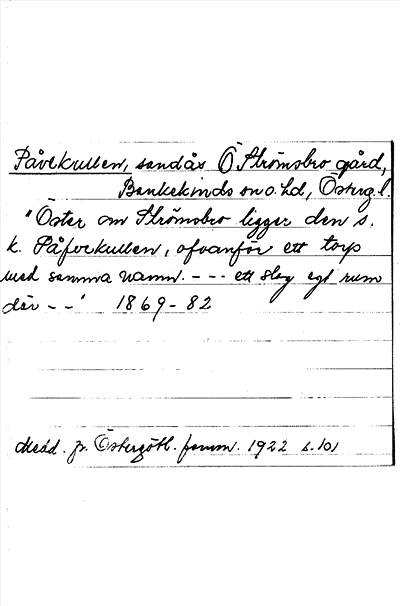 Påvekullen, sandås Ö Strömsbro gård,
Bankekinds sn o. hd, Österg.l.
"Öster om Strömsbro ligger den s.
k. Påfvekullen, ofvanför ett torp
med samma namn. - - - ett slag egt rum
där - - " 1869-82
Medd. fr. Östergötl. fornm. 1922 s. 101